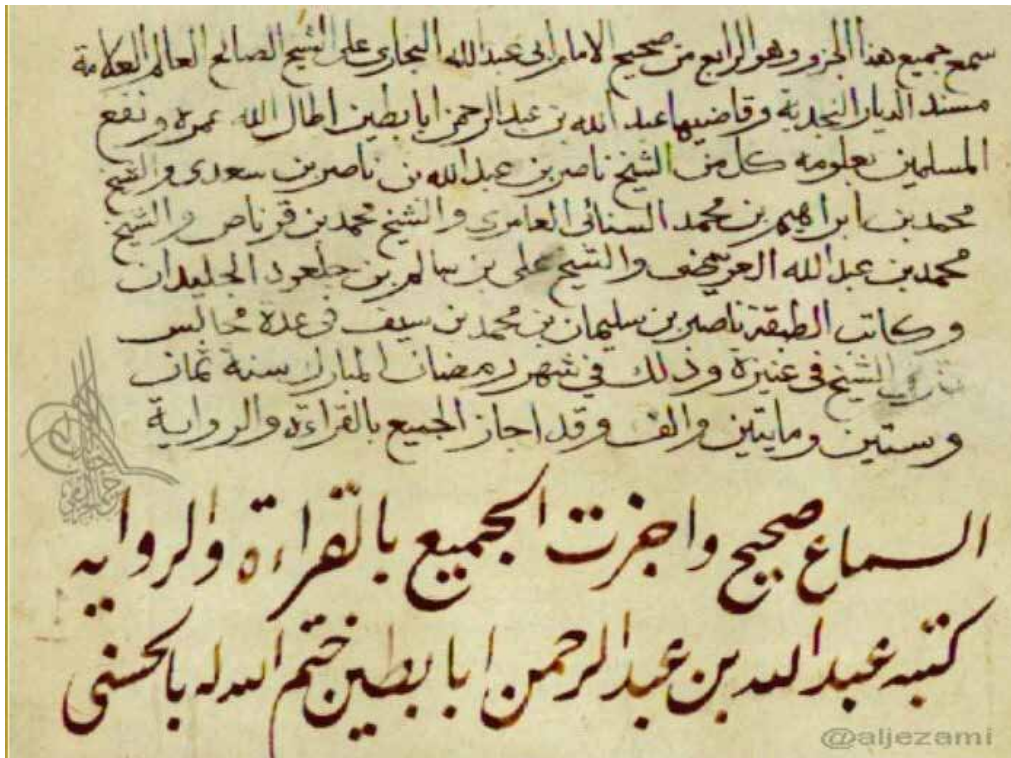 سمع جميع هذا الجزو وهو الرابع من صحيح الامام ابى عبدالله البخارى على الشيخ الصالح العالم العلامة
مسند الديار النجدية وقاضيها عبد الله بن عبدالرحمن ابابطين اطال الله عمره ونفع
المسلمين بعلومه كل من الشيخ ناصر بن عبدالله بن ناصر بن سعدى والشيخ
محمد بن ابراهيم بن محمد السنائى العامرى والشيخ محمد بن قرناص والشيخ
محمد بن عبدالله العوسجى والشيخ على بن سالم بن جلعود الجليدان
وكاتب الطبقة ناصر بن سليمان بن محمد بن سيف فى عدة مجالس
الشيخ فى عنيزة وذلك فى شهر رمضان المبارك سنة ثمان
وستين ومايتين والف وقد اجاز الجميع بالقراءة والرواية
السماع صحيح واجزت الجميع بالقراءة والرواية
كتبه عبدالله بن عبدالرحمن ابا بطين ختم الله له بالحسنى
@aljezami